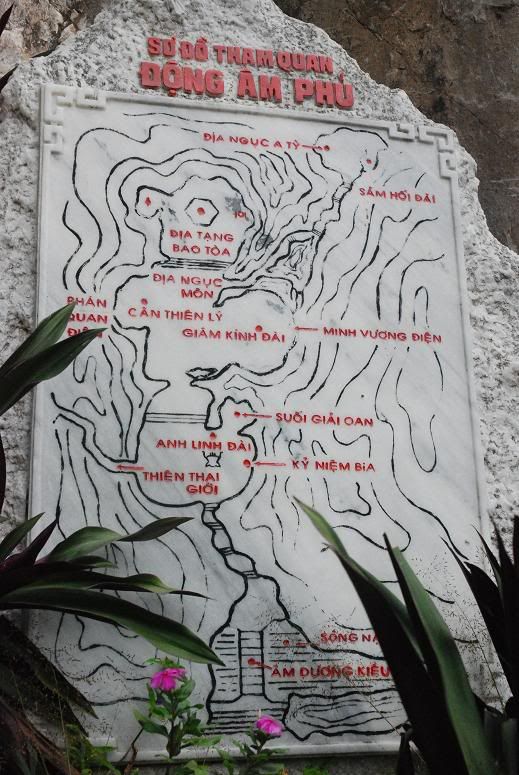 SƠ ĐỒ THAM QUAN
ĐỘNG ÂM PHỦ
ĐỊA NGỤC A TỲ
SÁM HỐI ĐÀI
ĐỊA TẠNG
BẢO TÒA
ĐỊA NGỤC
MÔN
PHÁN
QUAN
CÂN THIÊN LÝ
GIÁM KÍNH ĐÀI
MINH VƯƠNG ĐIỆN
SUỐI GIẢI OAN
ANH LINH ĐÀI
KỶ NIỆM BIA
THIÊN THAI
GIỚI
SÔNG
ÂM DƯƠNG KIỀU